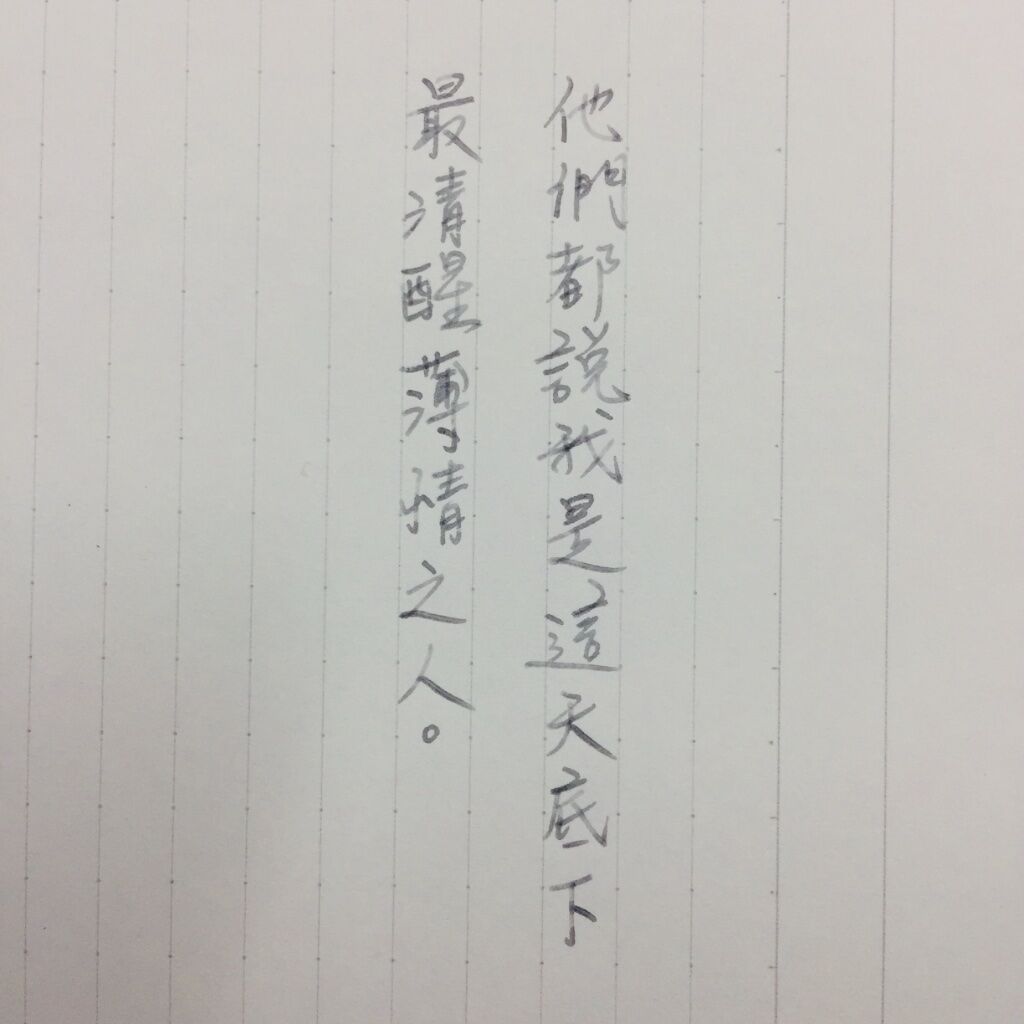 他們都說我是這天底下
最清醒薄情之人。